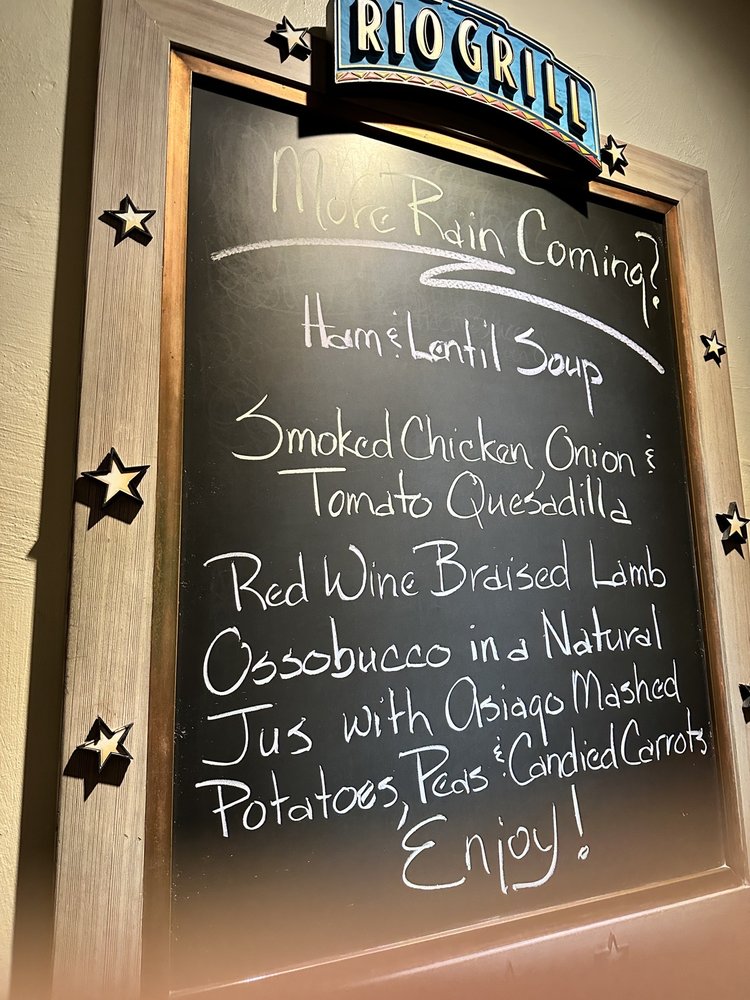 RIO GRILL
More Rain Coming?
Ham & Lentil Soup
Smoked Chicken, Onion &
Tomato Quesadilla
Red Wine Braised Lamb
Ossobucco in a Natural
Jus with Asiago Mashed
Potatoes, Peas & Candied Carrots
Enjoy!